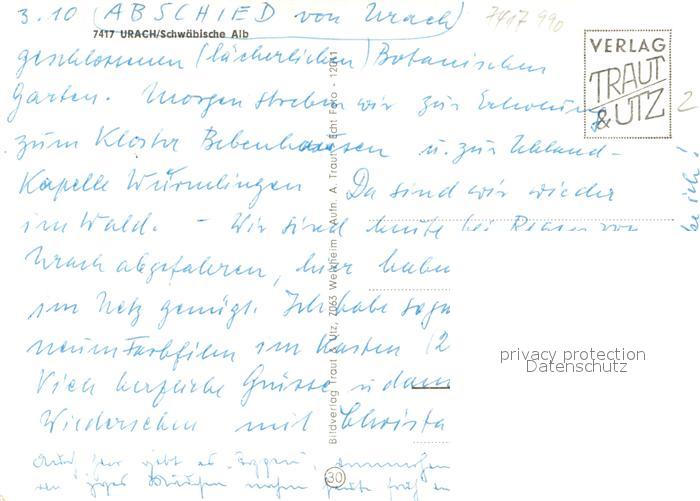 3.10 (ABSCHIED von Urach)
7417 990
7417 URACH/Schwäbische Alb
geschlossenen (lächerlichen) Botanischen
Garten. Morgen streben wir zur
zum Kloster Bebenhausen u. zur Uhland-
Kapelle Wurmlingen Da sind wir wieder
im Wald. - Wir sind heute bei Regen von
Urach abgefahren, hier haben
im Netz genügt. Ich habe soga
neuen Farbfilm im Kasten (2
Viele herzliche Grüsse u dann
Wiedersehen mit Christa
VERLAG
TRAUT
& UTZ
2
Bildverlag Traut & Utz, 7063 Welzheim · Aufn. A. Traut · Echt Foto - 12041
30
privacy protection
Datenschutz